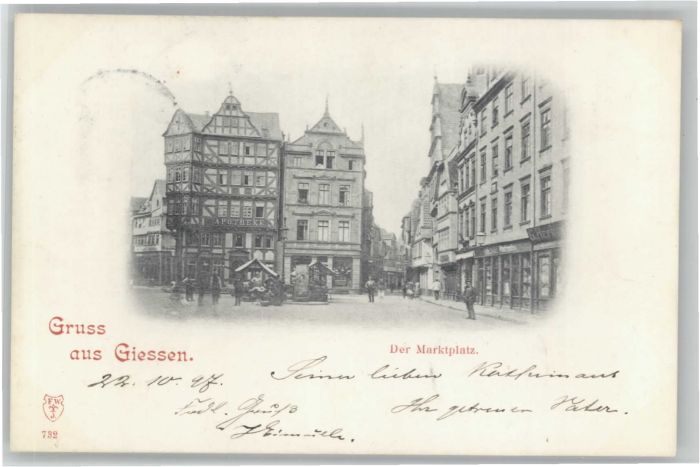 APOTHEKE
Gruss
aus Giessen.
Der Marktplatz.
22. 10. 97.
Seiner lieben
Fudl. Gruß
Ihr getreuer Vater.
F.W.
J
732